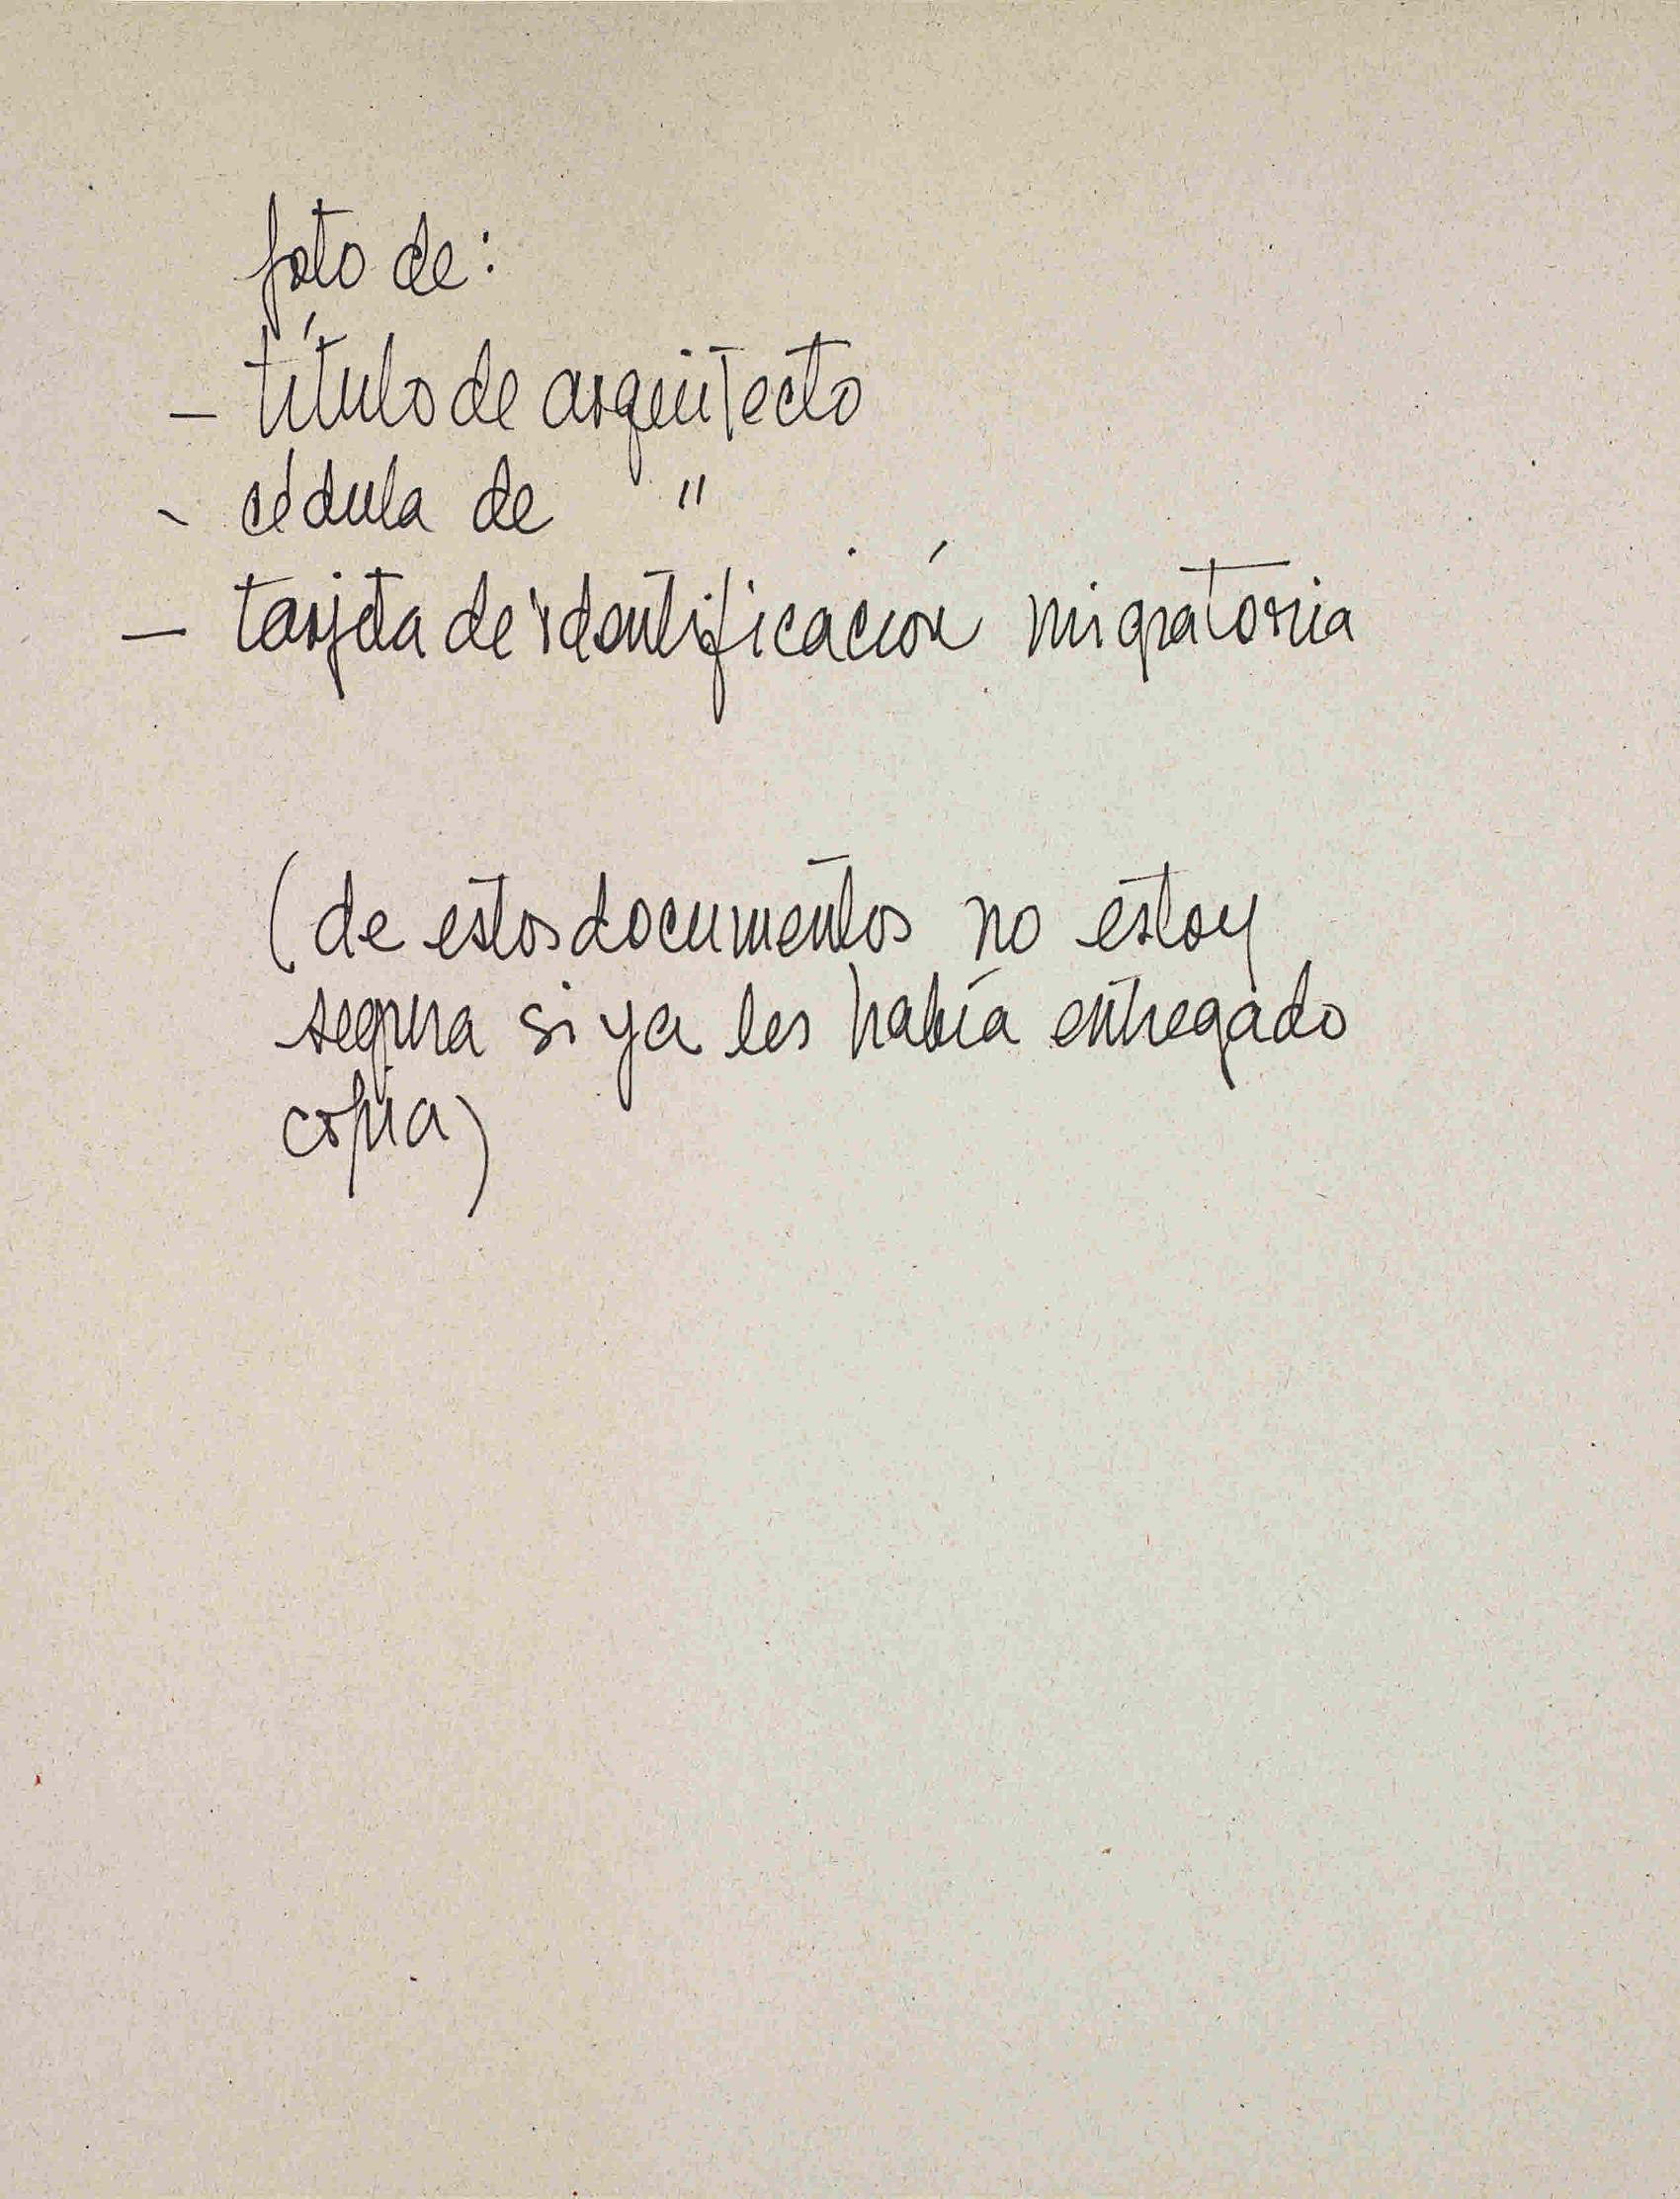 foto de:
– título de arquitecto
- cédula de "
– tarjeta de identificación migratoria
(de estos documentos no estoy
segura si ya les había entregado
copia)